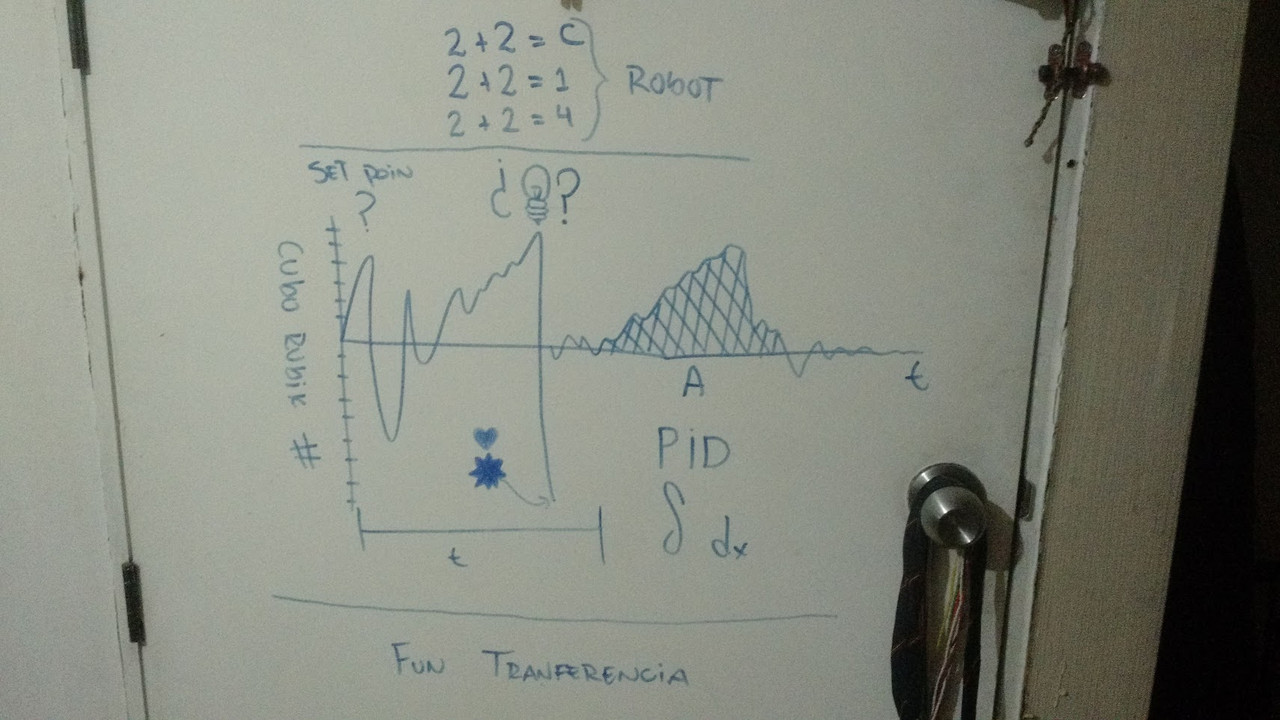 2 + 2 = C
2 + 2 = 1
2 + 2 = 4
ROBOT
SET POIN
?
¿ ?
CUBO RUBIK #
A
t
PiD
∫ dx
t
FUN TRANFERENCiA